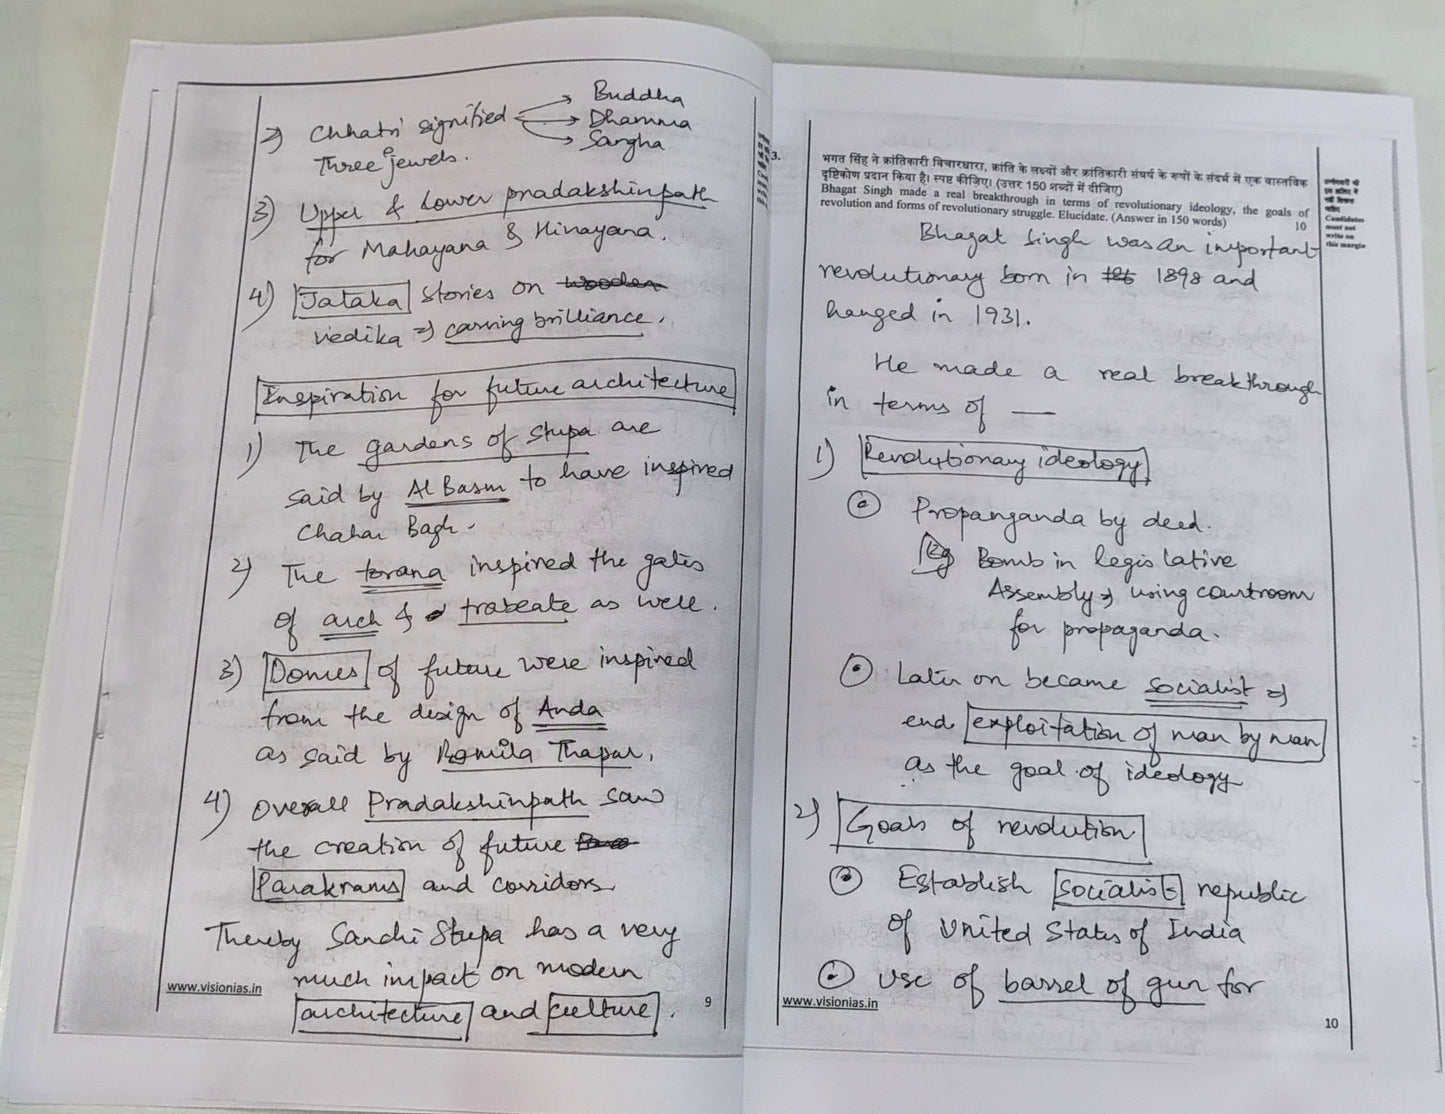 2) Chhatri signified → Buddha
→ Dhamma
→ Sangha
Three jewels.
3) Upper & Lower pradakshinpath
for Mahayana & Hinayana.
4) Jataka stories on wooden
vedika ⇒ carving brilliance.
Inspiration for future architecture
1) The gardens of stupa are
said by Al Basm to have inspired
Chahar Bagh.
2) The torana inspired the gates
of arch & trabeate as well.
3) Domes of future were inspired
from the design of Anda
as said by Romila Thapar.
4) Overall Pradakshinpath saw
the creation of future
Parakrams and corridors
Thereby Sanchi Stupa has a very
much impact on modern
architecture and culture.
www.visionias.in
9
3.
भगत सिंह ने क्रांतिकारी विचारधारा, क्रांति के लक्ष्यों और क्रांतिकारी संघर्ष के रूपों के संदर्भ में एक वास्तविक
दृष्टिकोण प्रदान किया है। स्पष्ट कीजिए। (उत्तर 150 शब्दों में दीजिए)
Bhagat Singh made a real breakthrough in terms of revolutionary ideology, the goals of
revolution and forms of revolutionary struggle. Elucidate. (Answer in 150 words) 10
Candidates
must not
write on
this margin
Bhagat Singh was an important
revolutionary born in 1898 and
hanged in 1931.
He made a real breakthrough
in terms of —
1) Revolutionary ideology
Propanganda by deed.
Eg Bomb in legislative
Assembly ⇒ using courtroom
for propaganda.
Later on became socialist ⇒
end exploitation of man by man
as the goal of ideology
2) Goals of revolution
Establish socialist republic
of United States of India
Use of barrel of gun for
www.visionias.in
10